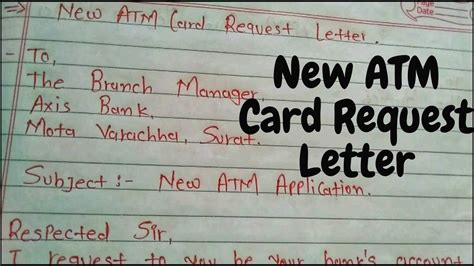 Page
Date
⇒ New ATM Card Request Letter.
To,
The Branch Manager,
Axis Bank,
Mota Varachha, Surat.
Subject :- New ATM Application.
Respected Sir,
I request to you be your bank's account
New ATM
Card Request
Letter